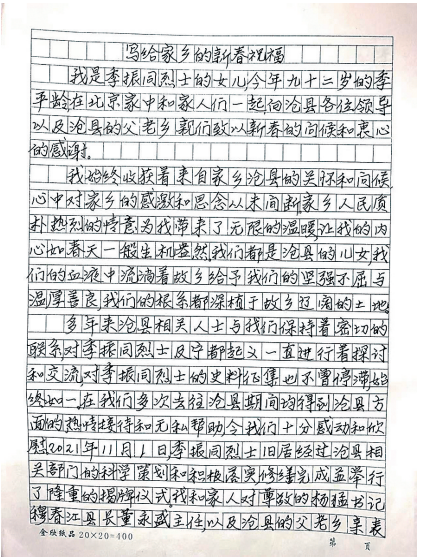 写给家乡的新春祝福
我是季振同烈士的女儿,今年九十二岁的季
平龄在北京家中和家人们一起向沧县各位领导
以及沧县的父老乡郭们致以新春的问候和衷心
的感谢。
我始终收获着来自家乡沧县的关怀和问候,
心中对家乡的感激和思念从未间断,家乡人民质
朴热烈的情意为我带来了无限的温暖,让我的内
心如春天一般生机盎然,我们都是沧县的儿女,我
们的血液中流淌着故乡给予我们的坚强不屈与
温厚善良,我们的根系都深植于故乡辽阔的土地。
多年来沧县相关人士与我们保持着密切的
联系,对季振同烈士及宁都起义一直进行着探讨
和交流,对季振同烈士的史料征集也不曾停滞,始
终如一。在我们多次去往沧县期间均得到沧县方
面的热情接待和无私帮助,令我们十分感动和欣
慰2021年11月1日季振同烈士旧居经过沧县相
关部门的科学策划和积极落实修缮完成并举行
了隆重的揭牌仪式。我和家人对尊敬的杨猛书记
穆春江县长董永盛主任,以及沧县的父老乡亲表
金欣纸品 20×20=400
第 页